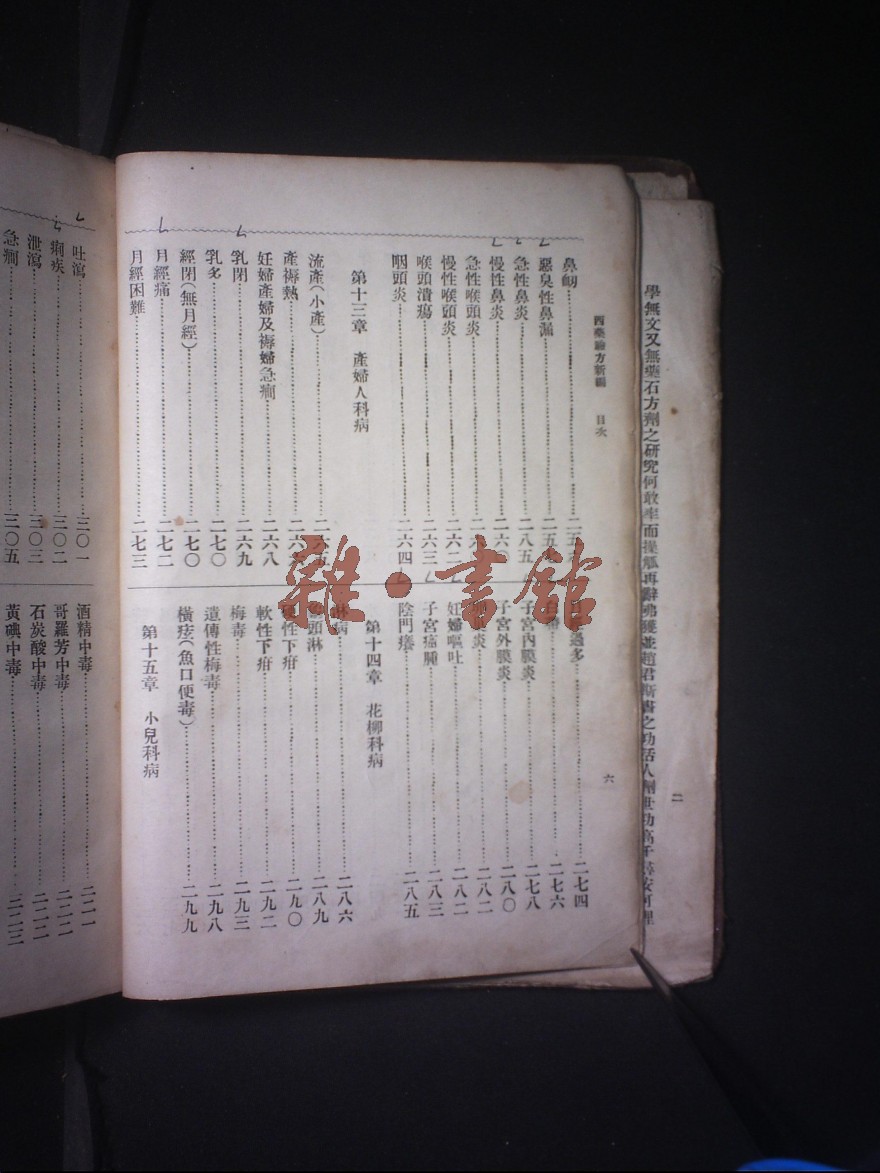 學無文又無藥石方劑之研究何敢率而操觚再辭弗獲並趙君斯書之功活人劑世功高千
二
西藥驗方新編 目次
六
鼻衄
惡臭性鼻漏
急性鼻炎 二八五
慢性鼻炎 二六〇
急性喉頭炎
慢性喉頭炎 二六二
喉頭潰瘍 二六三
咽頭炎 二六四
第十三章 產婦人科病
流產(小產) 二六五
產褥熱
妊婦產婦及褥婦急癇 二六八
乳閉 二六九
乳多 二七〇
經閉(無月經) 二七〇
月經痛 二七二
月經困難 二七三
過多 二七四
二七六
子宮內膜炎 二七八
子宮外膜炎 二八〇
炎 二八二
妊婦嘔吐 二八二
子宮癌腫 二八三
陰門癢 二八五
第十四章 花柳科病
淋病 二八六
頭淋 二八九
硬性下疳 二九〇
軟性下疳 二九二
梅毒 二九三
遺傳性梅毒 二九八
橫痃(魚口便毒) 二九九
第十五章 小兒科病
吐瀉 三〇一
痢疾 三〇二
泄瀉 三〇三
急癇 三〇五
酒精中毒
哥羅芳中毒
石炭酸中毒
黃碘中毒
雜·書館